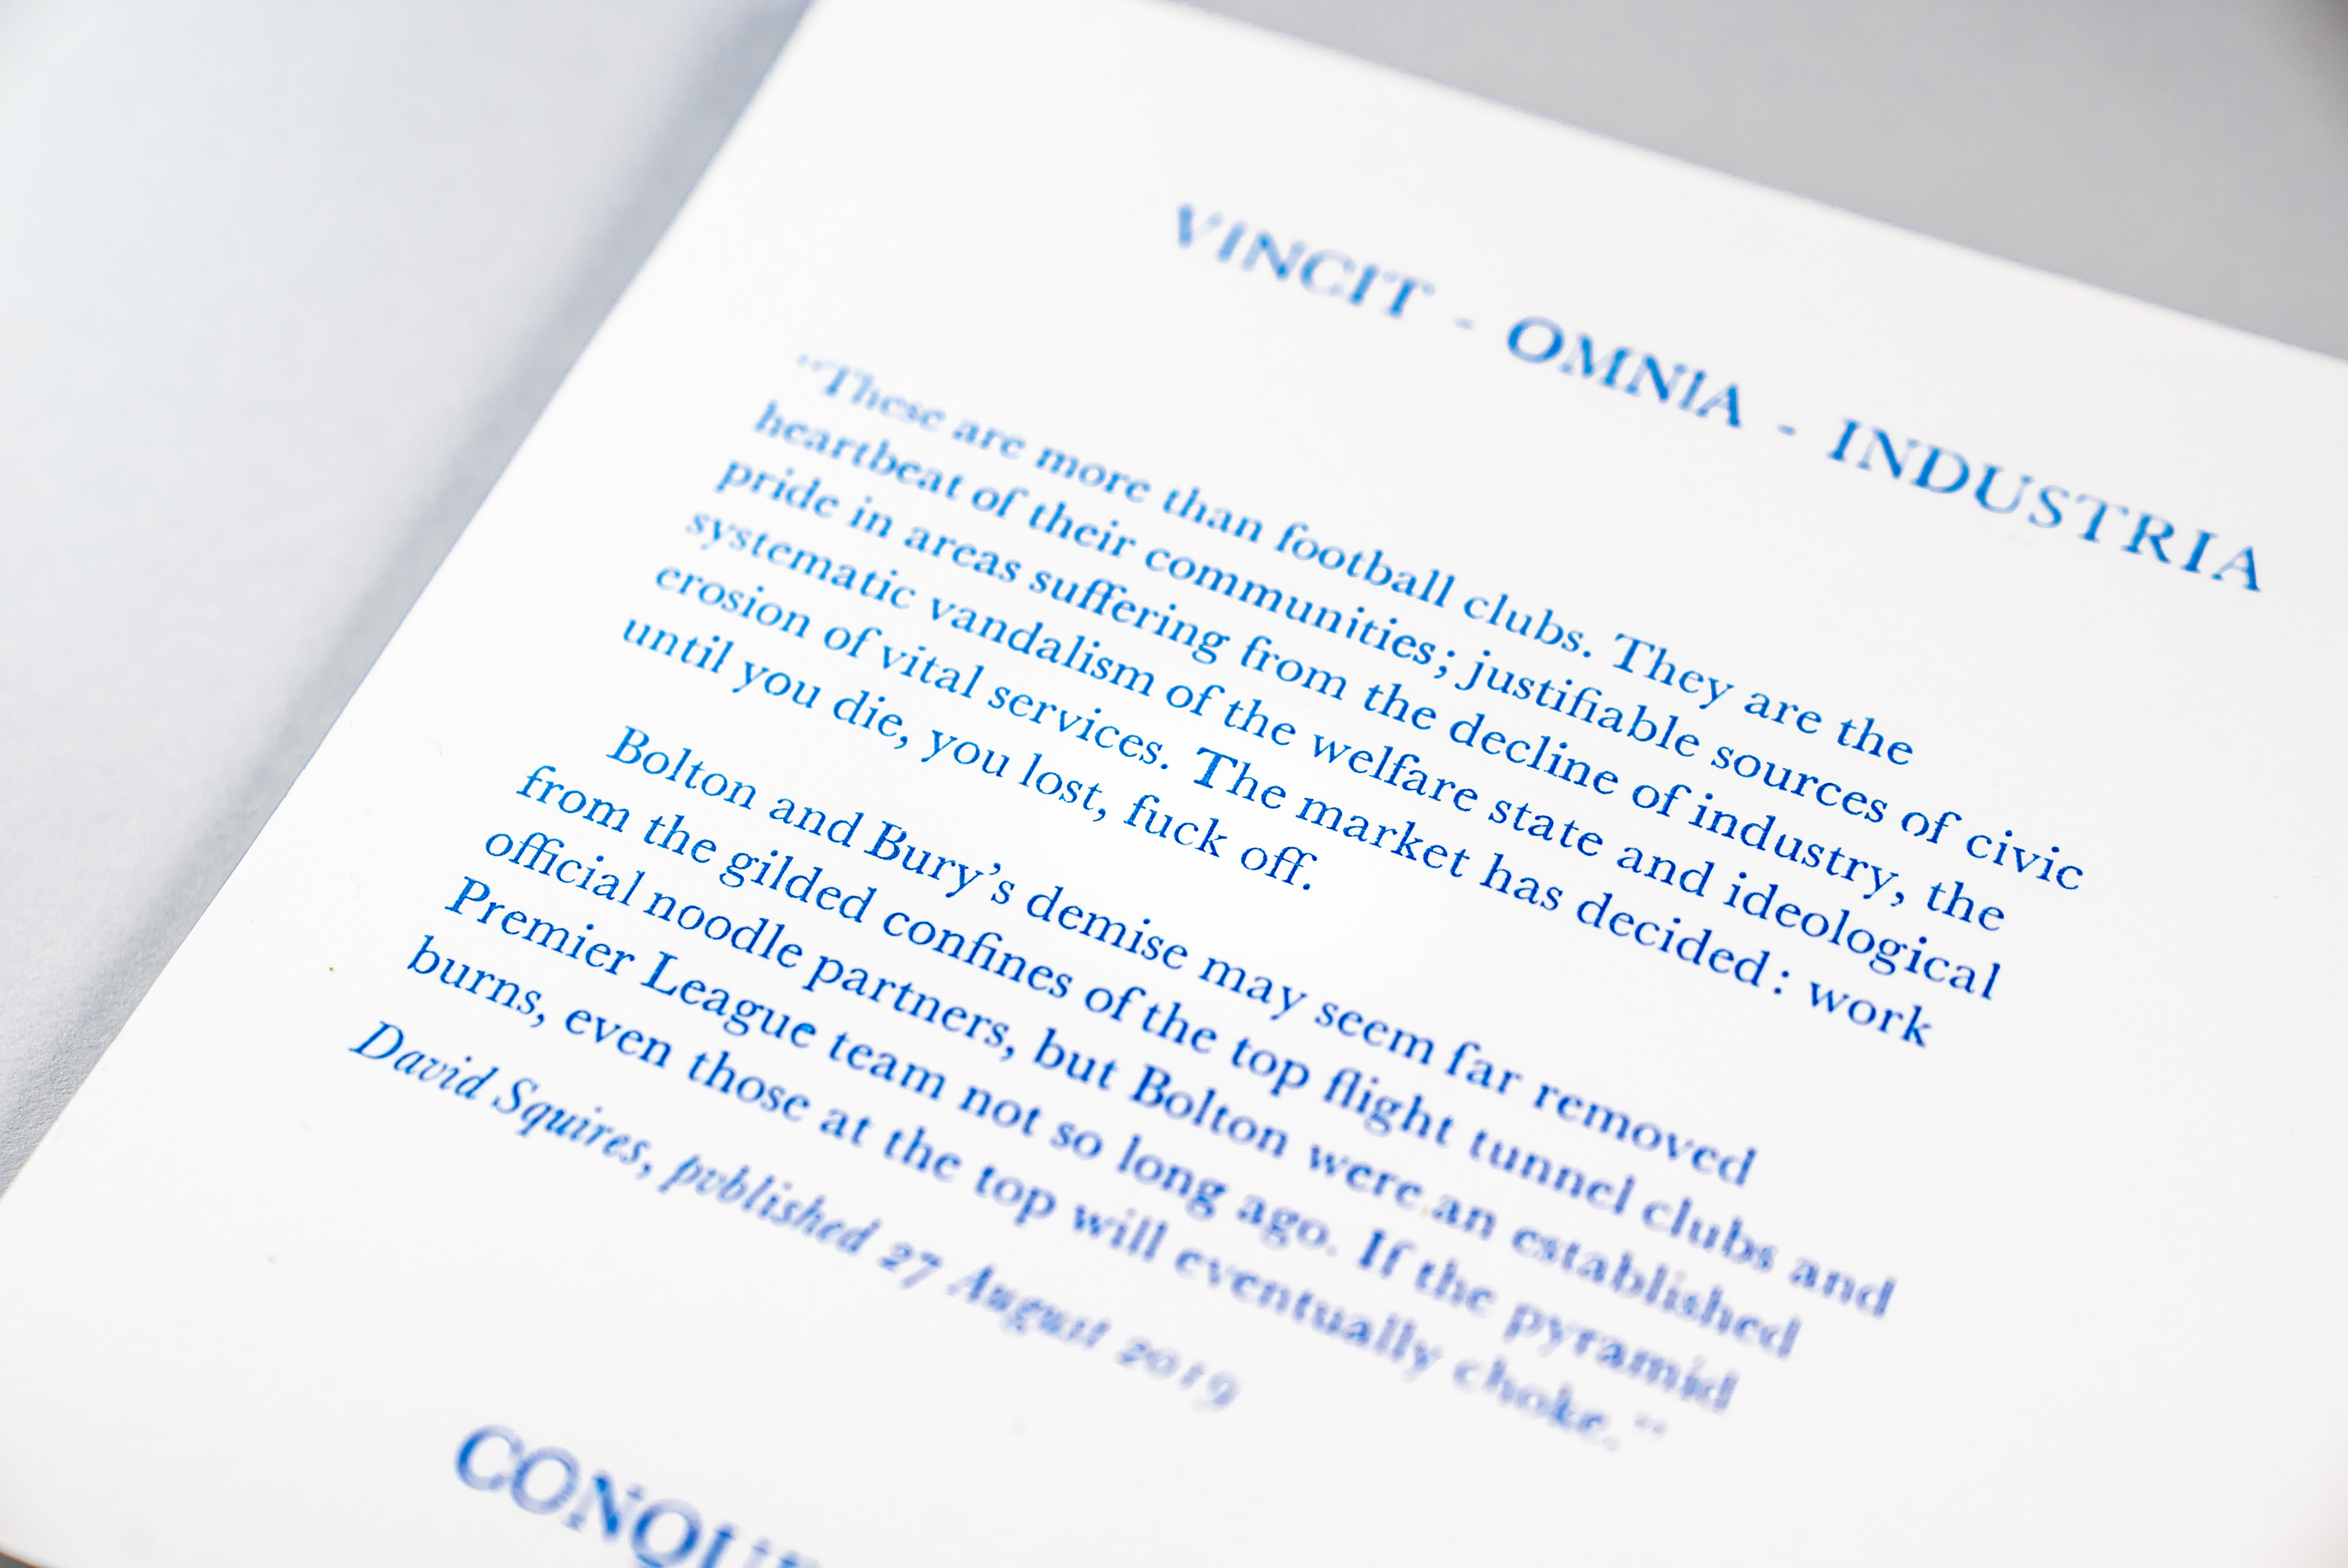 VINCIT - OMNIA - INDUSTRIA
"These are more than football clubs. They are the
heartbeat of their communities; justifiable sources of civic
pride in areas suffering from the decline of industry, the
systematic vandalism of the welfare state and ideological
erosion of vital services. The market has decided: work
until you die, you lost, fuck off.
Bolton and Bury's demise may seem far removed
from the gilded confines of the top flight tunnel clubs and
official noodle partners, but Bolton were an established
Premier League team not so long ago. If the pyramid
burns, even those at the top will eventually choke."
David Squires, pvblished 27 August 2019